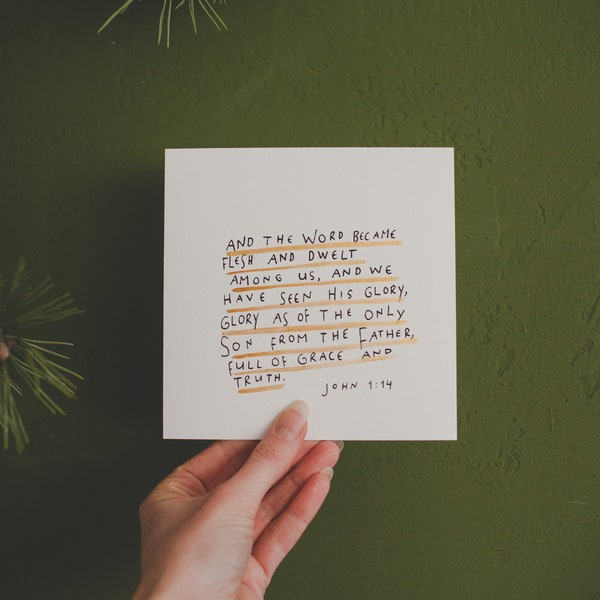 AND THE WORD BECAME
FLESH AND DWELT
AMONG US, AND WE
HAVE SEEN HIS GLORY,
GLORY AS OF THE ONLY
SON FROM THE FATHER,
FULL OF GRACE AND
TRUTH.
JOHN 1:14